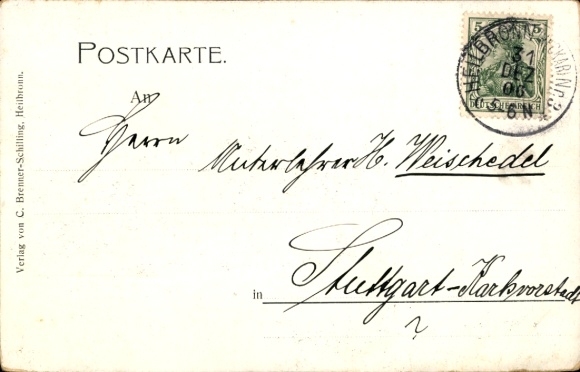 POSTKARTE.
5
HEILBRONN
31
DEZ
06
5-6 N
DEUTSCHES REICH
An
Herrn
Unterlehrer H. Weischedel
in Stuttgart-Karlsvorstadt
Verlag von C. Brenner-Schilling, Heilbronn.